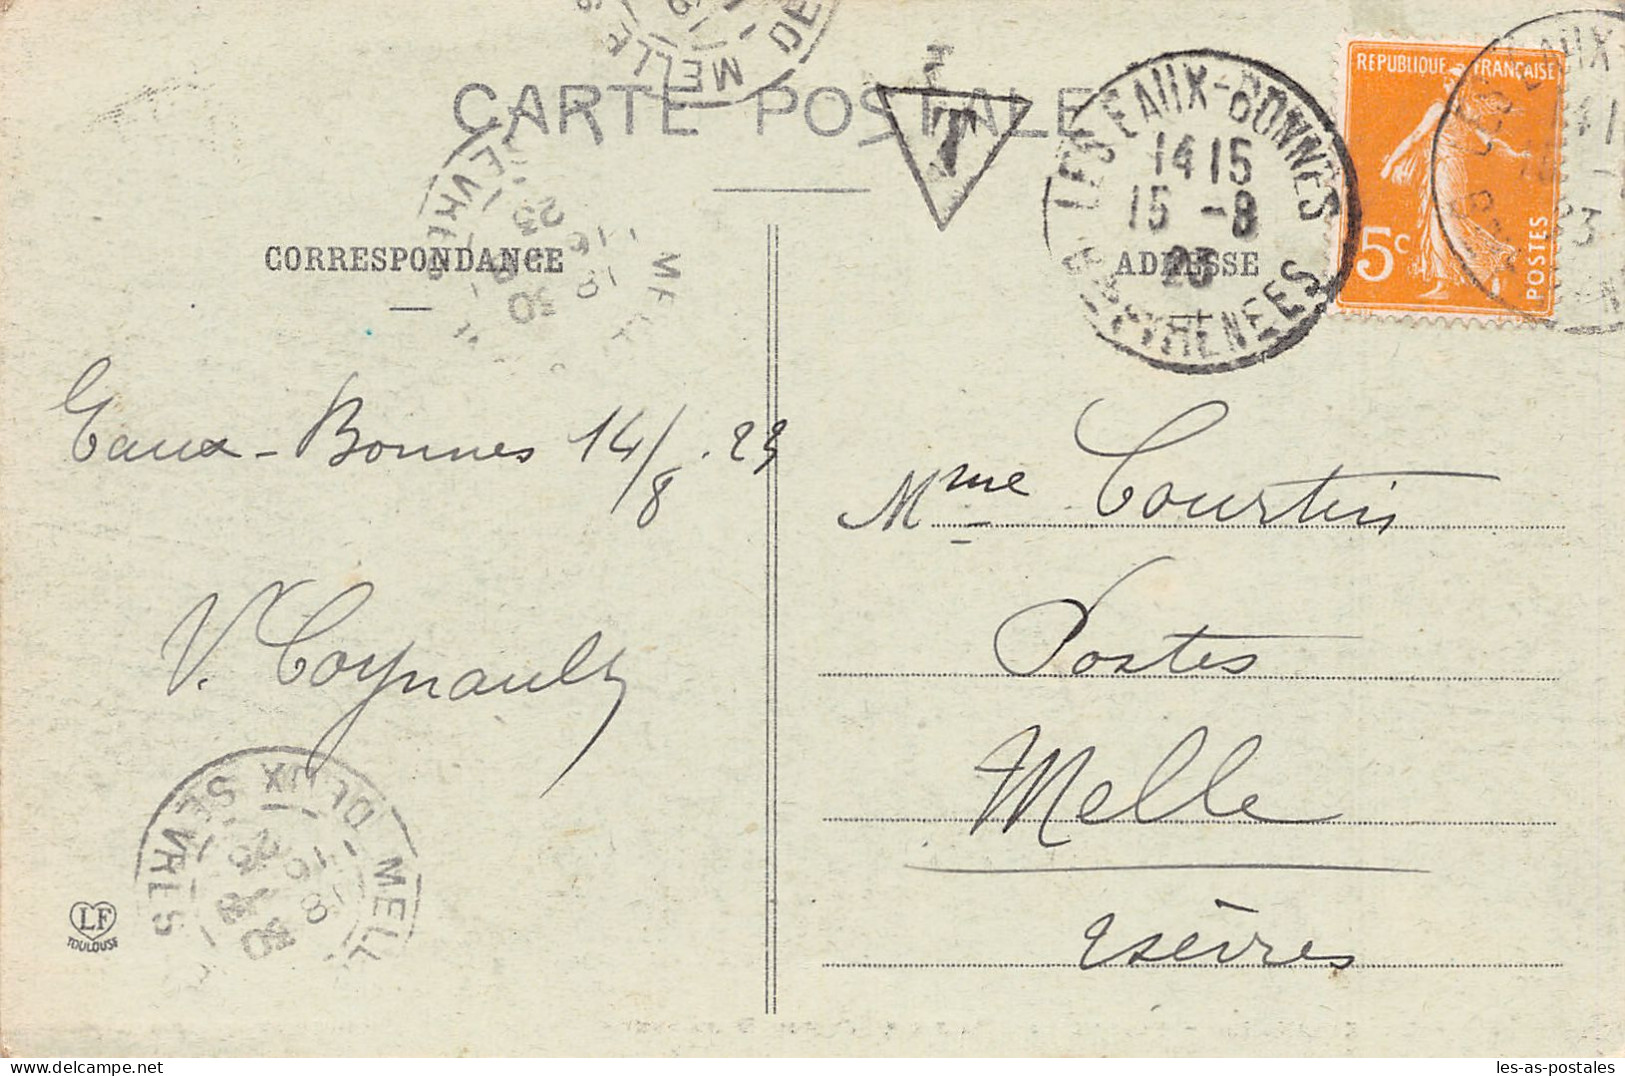 CARTE POSTALE
MELLE
T
LES EAUX-BONNES
14 15
15 -8
23
PYRENEES
REPUBLIQUE FRANÇAISE
5c
POSTES
CORRESPONDANCE
ADRESSE
Eaux-Bonnes 14/8.23
V. Coynault
Mme Courtin
Postes
Melle
2 sèvres
MELLE DEUX SEVRES
LF
TOULOUSE
les-as-postales